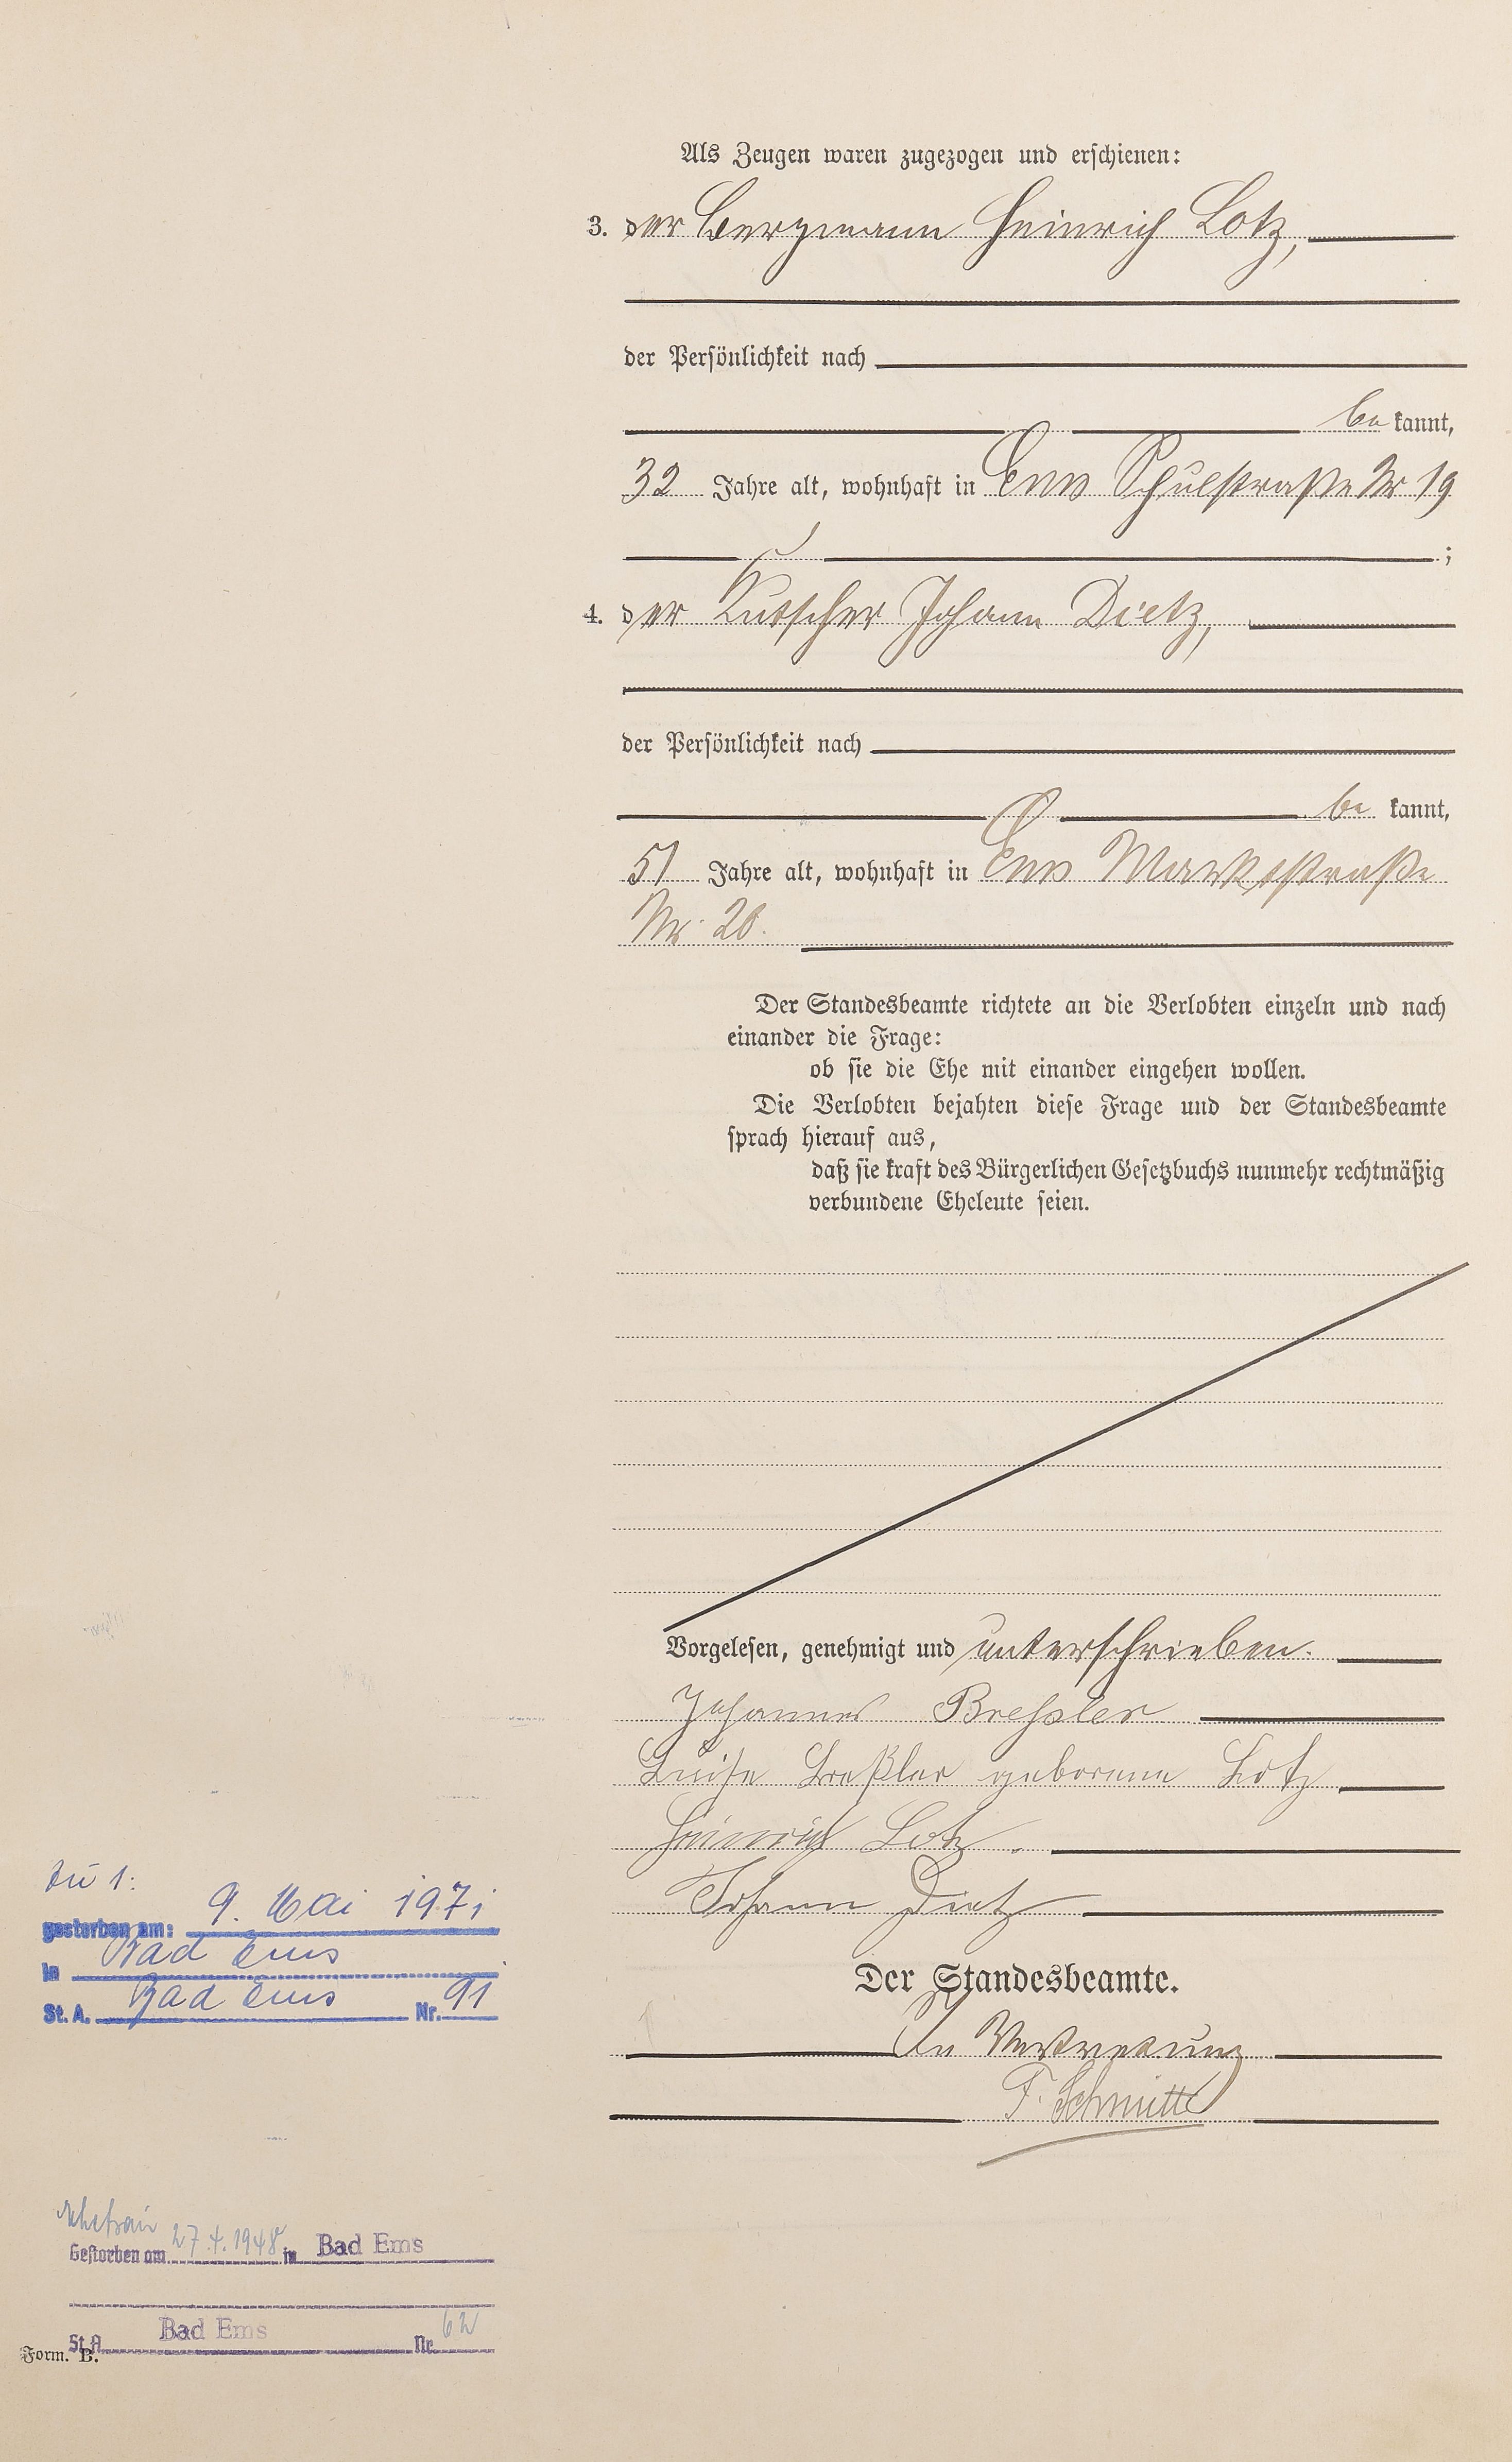 Als Zeugen waren zugezogen und erschienen:
3. der Bergmann Heinrich Lotz,
der Persönlichkeit nach
be kannt,
32 Jahre alt, wohnhaft in Ems Schulstraße Nr 19
;
4. der Kutscher Johann Dietz,
der Persönlichkeit nach
be kannt,
51 Jahre alt, wohnhaft in Ems Marktstraße
Nr. 20.
Der Standesbeamte richtete an die Verlobten einzeln und nach
einander die Frage:
ob sie die Ehe mit einander eingehen wollen.
Die Verlobten bejahten diese Frage und der Standesbeamte
sprach hierauf aus,
daß sie kraft des Bürgerlichen Gesetzbuchs nunmehr rechtmäßig
verbundene Eheleute seien.
Vorgelesen, genehmigt und unterschrieben.
Johannes Breßler
Luise Breßler geborene Lotz
Heinrich Lotz.
Johann Dietz
Der Standesbeamte.
In Vertretung
F. Schmitt
zu 1:
gestorben am: 9. Mai 1971
in Bad Ems
St. A. Bad Ems Nr. 91
Ehefrau
Gestorben am 27.4.1948 in Bad Ems
St.A. Bad Ems Nr. 62
Form. B.